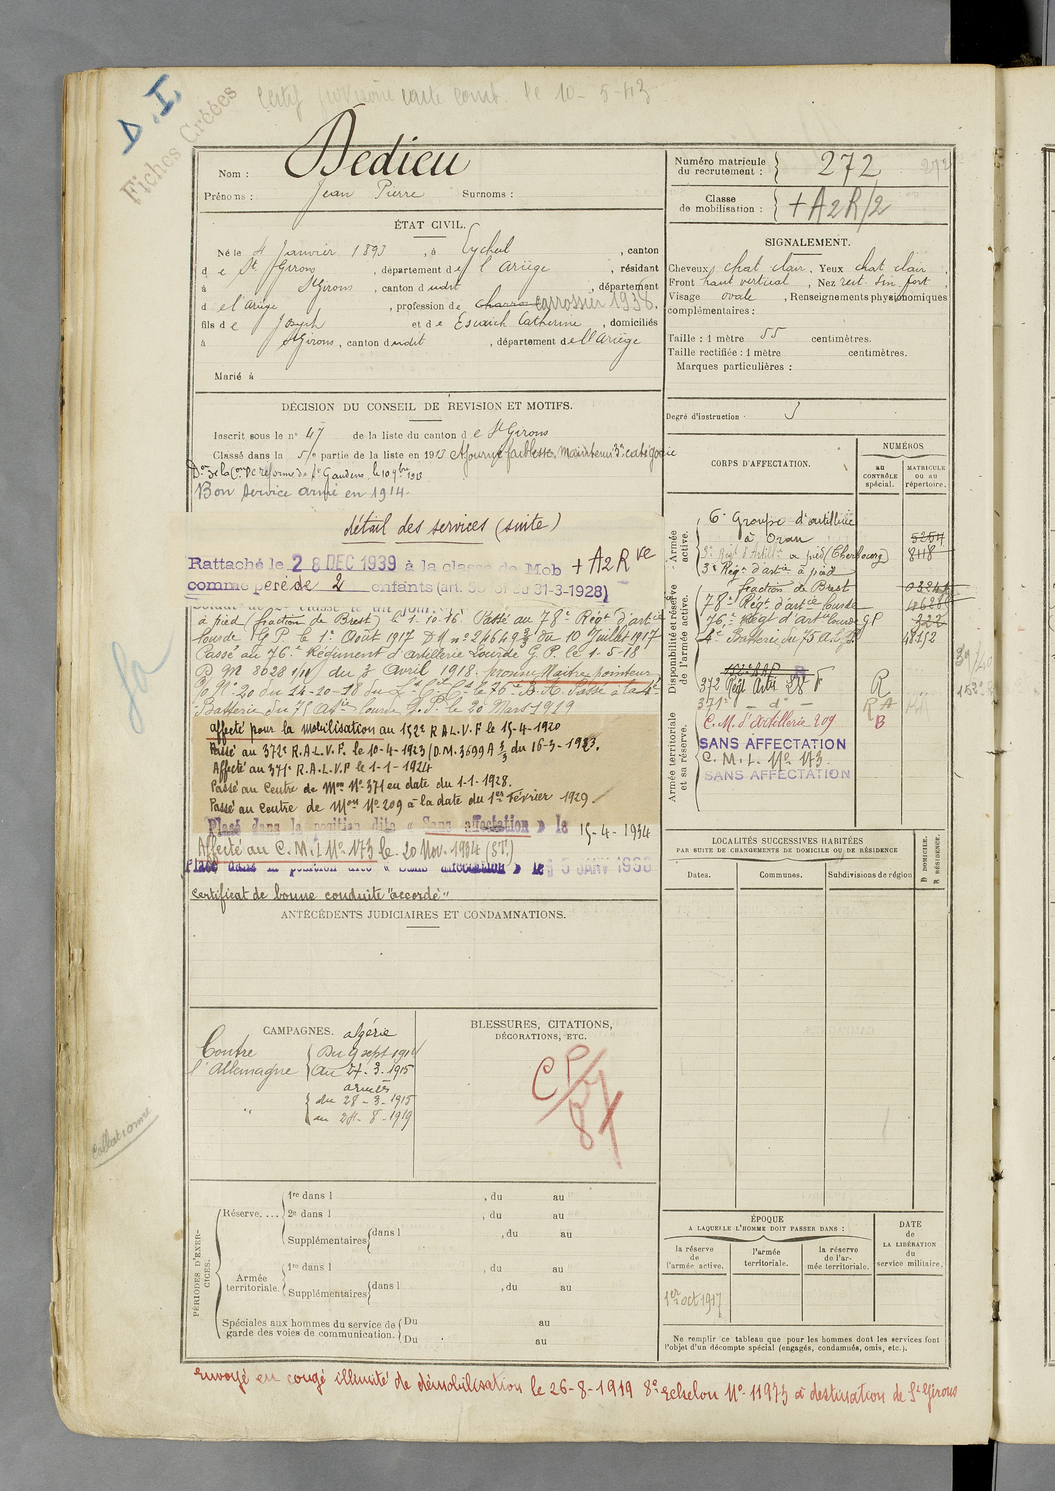 D.I.
Fiches Créées
Certif provisoire carte comb. le 10-5-43
Nom : Dedieu
Prénoms : Jean Pierre Surnoms :
Numéro matricule du recrutement : 272
272
Classe de mobilisation : + A2R/2
ÉTAT CIVIL.
Né le 4 Janvier 1893, à Eycheil, canton
de St Girons, département de l'Ariège, résidant
à St Girons, canton dudit, département
de l'Ariège, profession de charron carrossier 1938.
fils de Joseph et de Escaich Catherine, domiciliés
à St Girons, canton dudit, département de l'Ariège
Marié à
SIGNALEMENT.
Cheveux chat clair. Yeux chat clair,
Front haut vertical, Nez rect. sin. fort,
Visage ovale, Renseignements physionomiques
complémentaires :
Taille : 1 mètre 55 centimètres.
Taille rectifiée : 1 mètre centimètres.
Marques particulières :
Degré d'instruction : 3
DÉCISION DU CONSEIL DE REVISION ET MOTIFS.
Inscrit sous le n° 47 de la liste du canton de St Girons
Classé dans la 5e partie de la liste en 1913 Ajourné faiblesse, maintenu 3e catégorie
Don de la Con de réforme de St Gaudens le 10 9bre 1913
Bon service armé en 1914.
détail des services (suite)
Rattaché le 28 DEC 1939 à la classe de Mob + A2Rve
comme père de 2 enfants (art. 58 loi du 31-3-1928)
à pied (fraction de Brest) le 1.10.16. Passé au 78e Régt d'artie
lourde G.P. le 1er Août 1917 DM n° 24649 3/3 du 10 Juillet 1917
Passé au 76e Régiment d'Artillerie Lourde G.P. le 1-5-18
D.M. 8028 1/11 du 3 Avril 1918. promu Maître pointeur
Batterie du 75 Artie lourde G.P. le 20 Mars 1919
affecté pour la mobilisation au 152e R.A.L.V.F. le 15-4-1920
Passé au 372e R.A.L.V.F. le 10-4-1923 (D.M. 3699 A 2/3 du 16-3-1923.
Affecté au 371e R.A.L.V.F le 1-1-1924
Passé au Centre de Mon N° 371 en date du 1-1-1928.
Passé au Centre de Mon N° 209 à la date du 1er Février 1929.
Placé dans la position dite « Sans affectation » le 15-4-1934
Affecté au C.M.I N° 173 le 20 Nov. 1934 (S.T.)
Placé dans la position dite « Sans affectation » le 15 JANV 1938
Certificat de bonne conduite "accordé"
CORPS D'AFFECTATION.
NUMÉROS
AU CONTRÔLE spécial.
MATRICULE OU AU répertoire.
Armée active.
6e Groupe d'artillerie
à Oran 5254
3e Régt d'Artie à pied (Cherbourg) 8118
3e Régt d'artie à pied
Disponibilité et réserve de l'armée active.
fraction de Brest
78e Régt d'artie lourde
76e Régt d'artie lourde G P
4e Batterie du 75 A.L.G.P. 18152
372 Régt Artie LVF R
371e — d° — R A
Armée territoriale et sa réserve.
C.M. d'artillerie 209 B
SANS AFFECTATION
C.M.I. N° 173.
SANS AFFECTATION
LOCALITÉS SUCCESSIVES HABITÉES
PAR SUITE DE CHANGEMENTS DE DOMICILE OU DE RÉSIDENCE
Dates. Communes. Subdivisions de région
D DOMICILE.
R RÉSIDENCE.
ANTÉCÉDENTS JUDICIAIRES ET CONDAMNATIONS.
CAMPAGNES.
Contre l'Allemagne
algérie
Du 9 sept 1914
au 27.3.1915
armées
du 28-3-1915
au 28-8-1919
BLESSURES, CITATIONS,
DÉCORATIONS, ETC.
collationné
PÉRIODES D'EXERCICES.
Réserve....
1re dans l , du au
2e dans l , du au
Supplémentaires dans l , du au
Armée territoriale.
1re dans l , du au
Supplémentaires dans l , du au
Spéciales aux hommes du service de
garde des voies de communication.
Du au
Du au
ÉPOQUE
A LAQUELLE L'HOMME DOIT PASSER DANS :
la réserve de l'armée active.
l'armée territoriale.
la réserve de l'armée territoriale.
DATE de LA LIBÉRATION du service militaire.
1er oct 1917
Ne remplir ce tableau que pour les hommes dont les services font
l'objet d'un décompte spécial (engagés, condamnés, omis, etc.).
Envoyé en congé illimité de démobilisation le 26-8-1919 8e Echelon N° 11973 à destination de St Girons